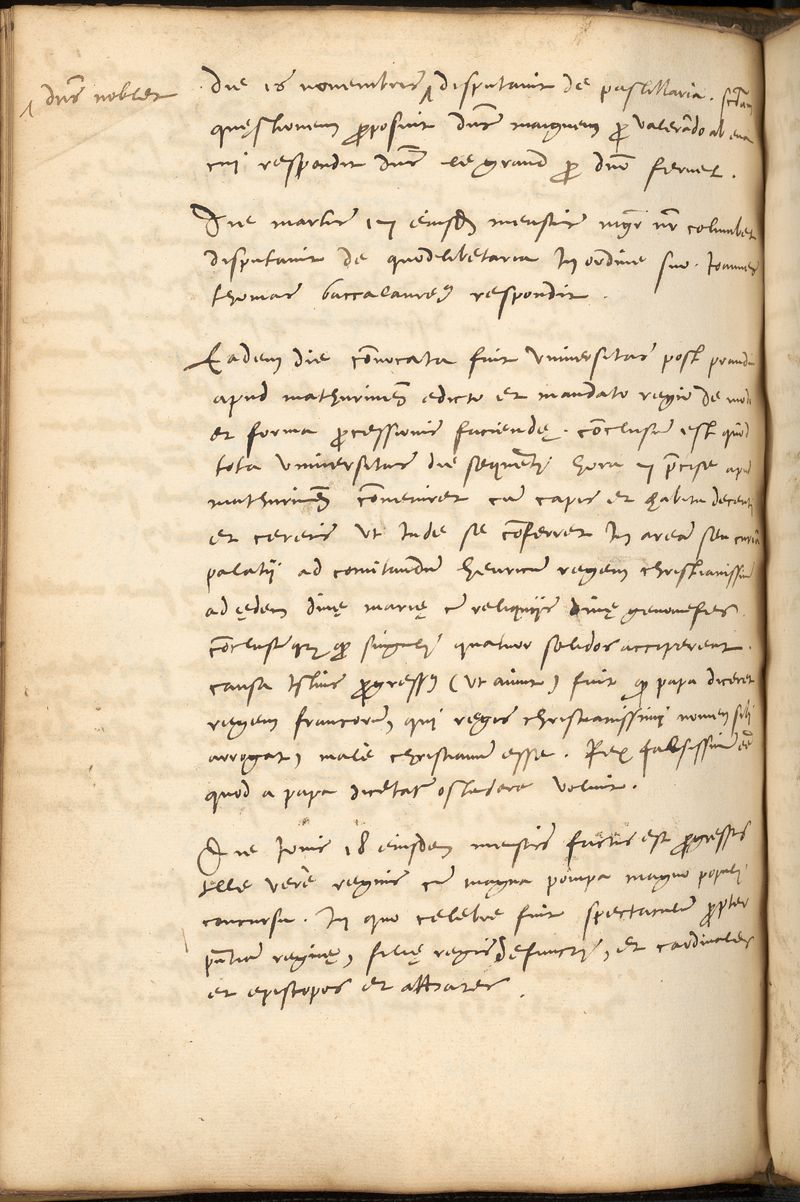 dns noblet
die 16 novembris disputavit de pastillaria. secundam
quęstionem proposuit dns maignem pro valerando ab ena
cui respondit dns legrand pro dno fervet.
Die martis 17 eiusdem mensis mgr nr columbet
disputavit de quodlibetaria In ordine suo. Ioannes
thomas baccalaureus respondit.
Eadem die convocata fuit Universitas post prandium
apud mathurinenses edicto et mandato regio de modo
et forma processionis faciendę. conclusum est quod
tota Universitas die sequenti hora 7 precise apud
mathurinenses conveniret cum capis et habitu decenti
et cereis ut Inde se conferret In aream seu curiam
palatii ad comitandum henricum regem christianissimum
ad ędem divę marię cum reliquiis divę genovefes.
conclusumque quod singuli quatuor solidos acciperent.
causa Istius progressus (ut aiunt) fuit quod papa diceret
regem francorum, qui regis christianissimi nomen sibi
arrogat, male christianum esse. Rex falsissimum esse
quod a papa dicetatur ostendere voluit.
Die Iovis 18 eiusdem mensis factus est progressus
Ille vere regius cum magna pompa magno populi
concursu. In quo celebre fuit spectaculum propter
presentiam reginę, filię regis defuncti, et cardinales
et episcopos et abbates.